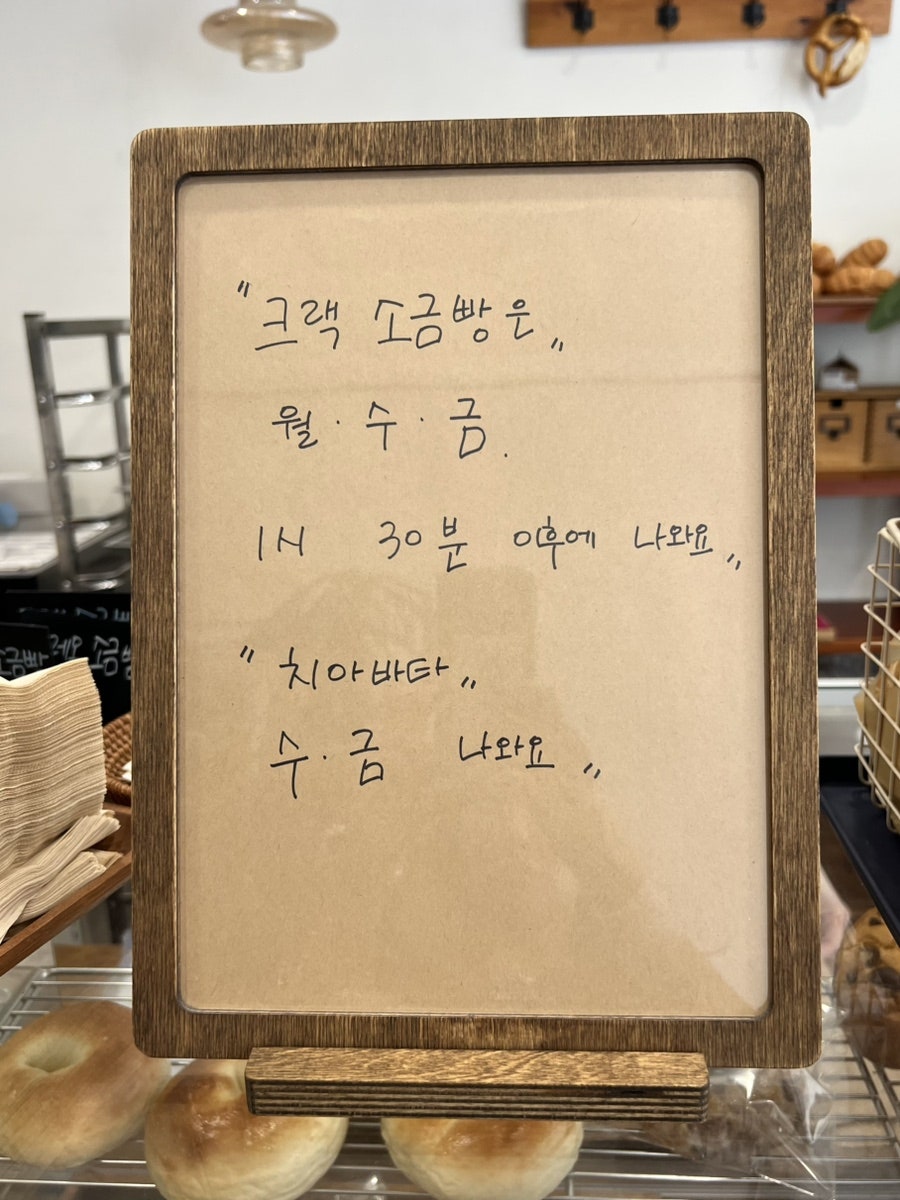 "크랙 소금빵은"
월·수·금.
1시 30분 이후에 나와요"
"치아바타"
수·금 나와요"